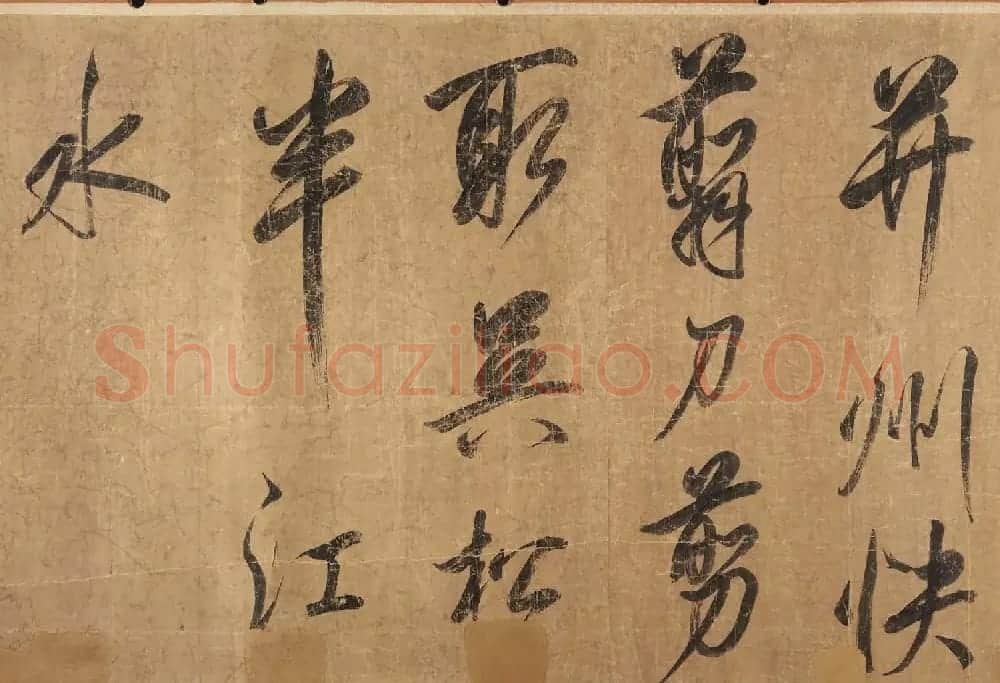 并州快
翦刀剪
取吳松
半江
水
Shufaziliao.COM